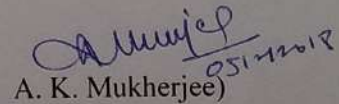 05/12/2018
A. K. Mukherjee)